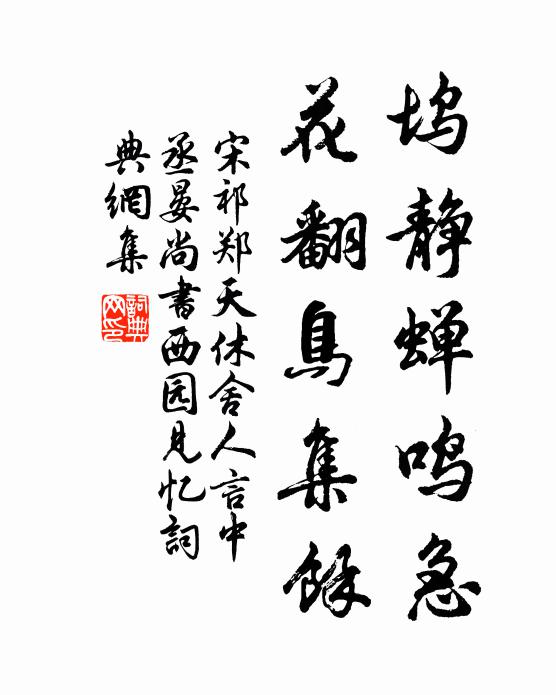 坞静蝉鸣急
花翻鸟集馀
宋祁郑天休舍人言中
丞晏尚書西园见忆詞
典網集
詞典
网印